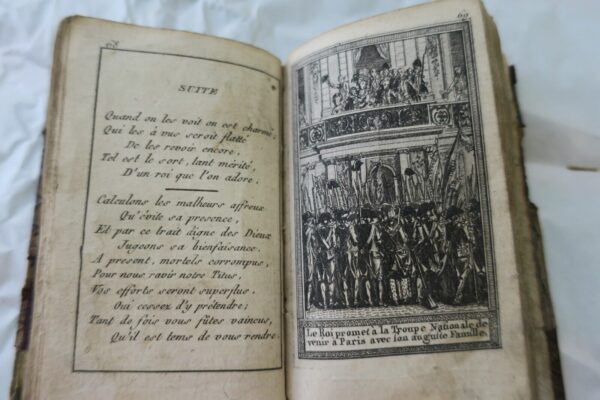 SUITE
Quand on les voit on est charmé,
Qui les à vus seroit flatté
De les revoir encore,
Tel est le sort, tant mérité,
D'un roi que l'on adore,
Calculons les malheurs affreux
Qu'évite sa presence,
Et par ce trait digne des Dieux
Jugeons sa bienfaisance.
A présent, mortels corrompus,
Pour nous ravir notre Titus,
Vos efforts seront superflus,
Oui cessez d'y prétendre;
Tant de fois vous fûtes vaincus,
Qu'il est tems de vous rendre
Le Roi promet a la Troupe Nationale de
venir à Paris avec son auguste Famille.